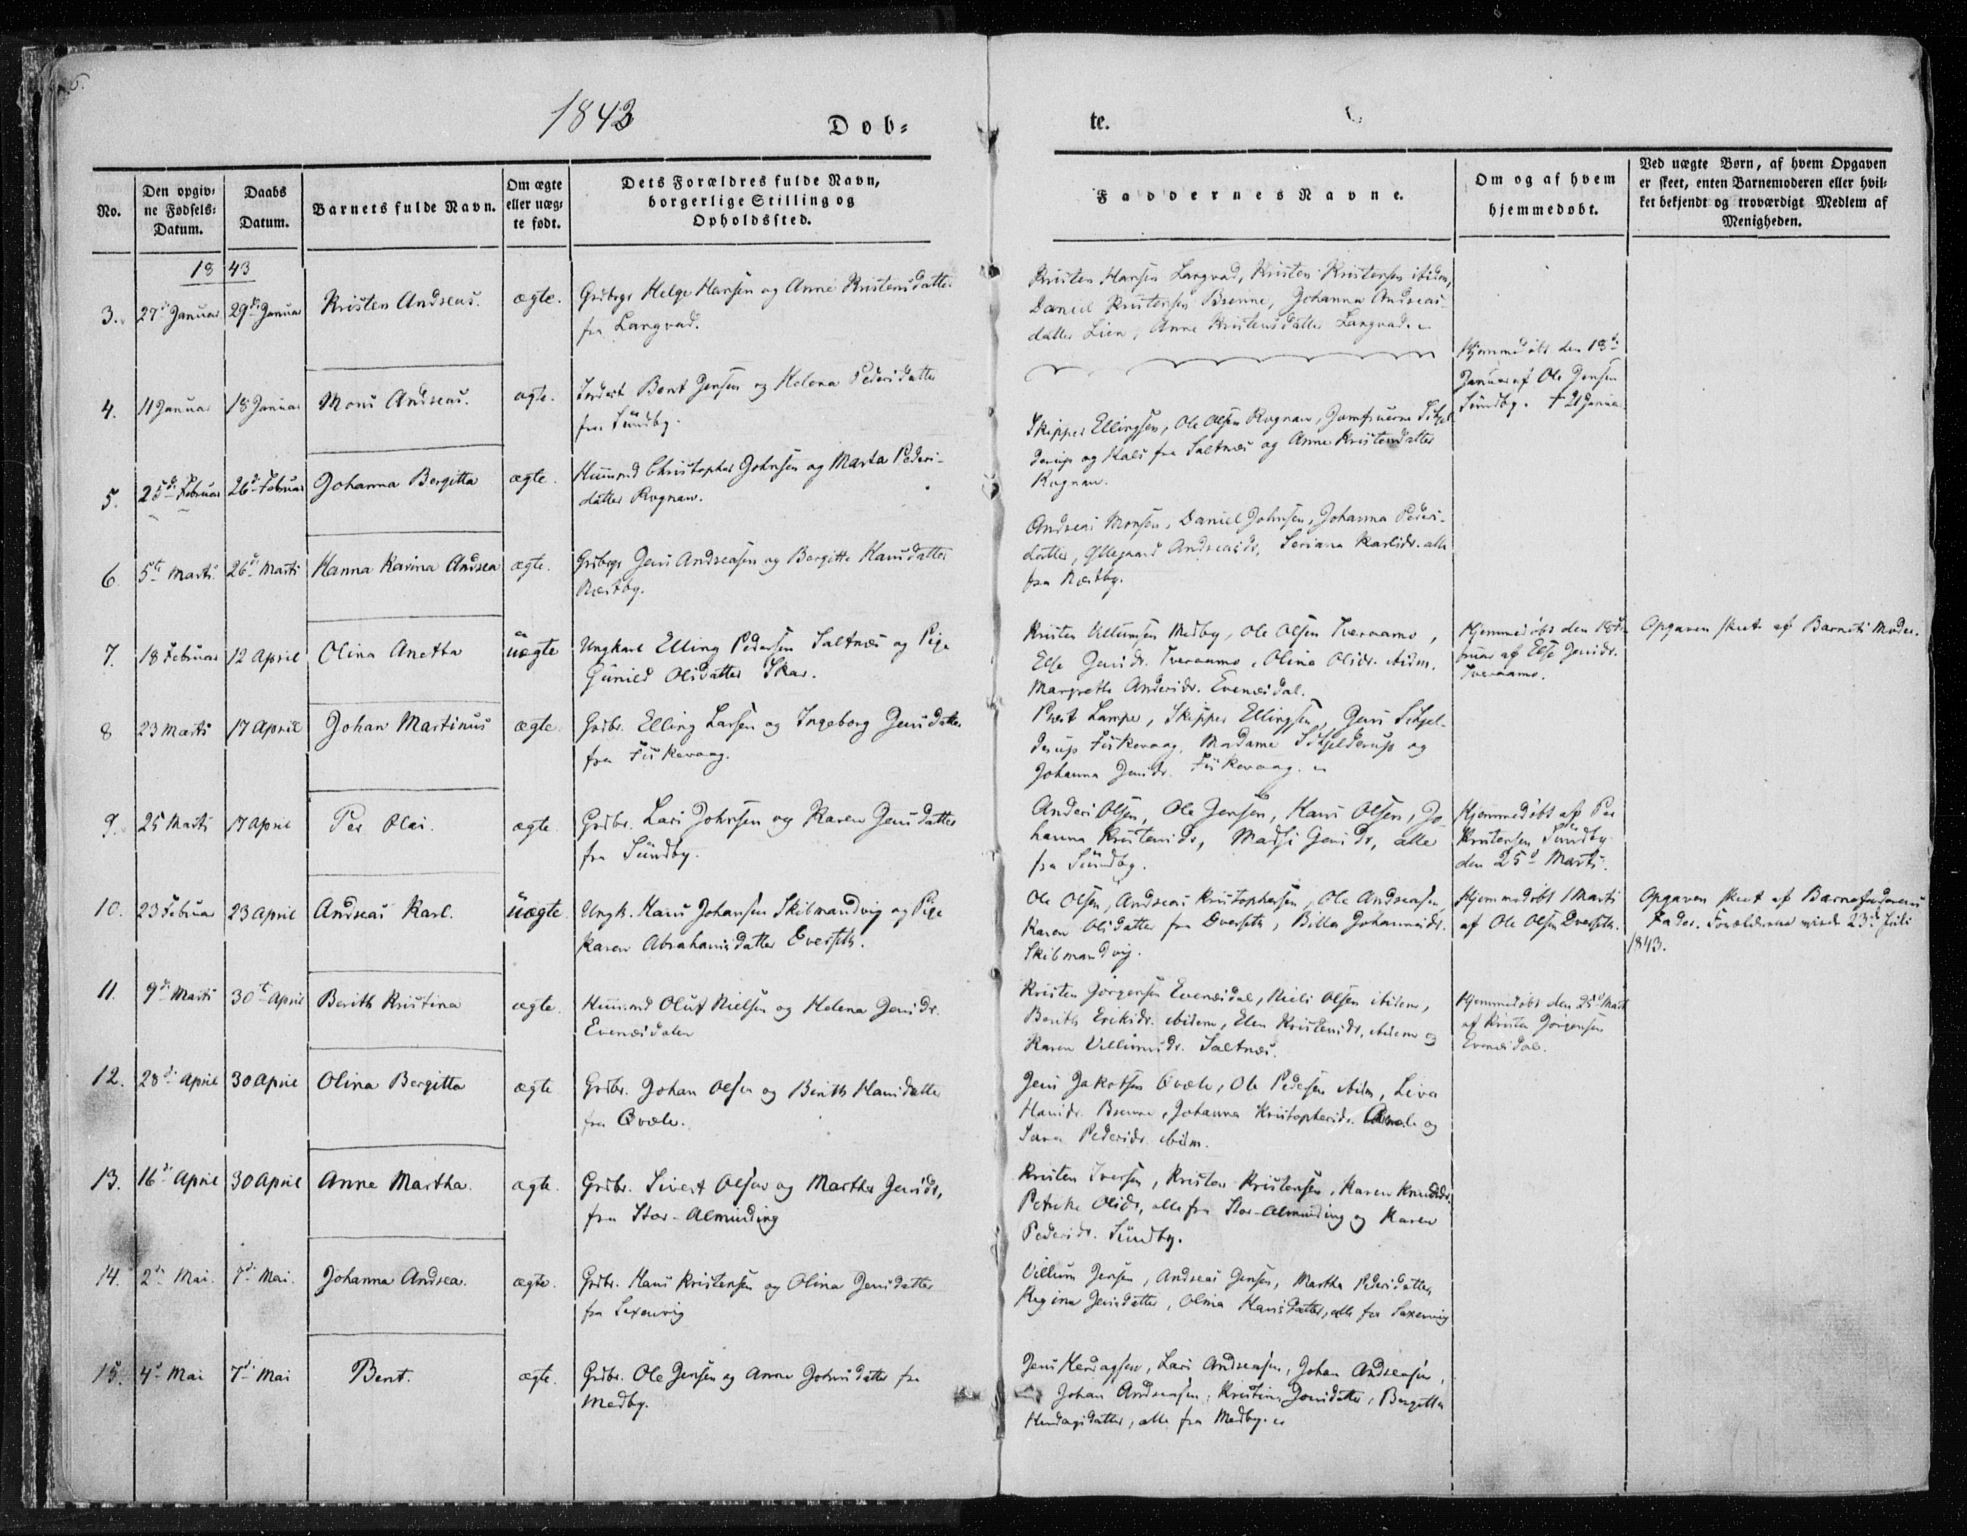 1843
Døb=
te.
No.
Den opgiv=
ne Fødsels=
Datum.
Daabs
Datum.
Barnets fulde Navn.
Om ægte
eller uæg=
te født.
Dets Forældres fulde Navn,
borgerlige Stilling og
Opholdssted.
Faddernes Navne.
Om og af hvem
hjemmedøbt.
Ved uægte Børn, af hvem Opgaven
er skeet, enten Barnemoderen eller hvil=
ket bekjendt og troværdigt Medlem af
Menigheden.
1843
3. 27de Januar 29de Januar Kristen Andreas. ægte. Grdbrgr Helge Hansen og Anne Kristensdatter
fra Langvad.
Kristen Hansen Langvad, Kristen Kristensen ibidem,
Daniel Kristensen Brenne, Johanna Andreas-
datter Lien, Anne Kristensdatter Langvad.
4. 11 Januar 18 Januar Mons Andreas. ægte. Inderst Bent Jensen og Helena Pedersdatter
fra Sundby.
Hjemmedøbt den 18de
Januar af Ole Jensen
Sundby. † 21 Januar
5. 25de Februar 26de Februar Johanna Bergitta ægte. Huusmd Christopher Johnsen og Marta Peders-
datter Rognan.
Skipper Ellingsen, Ole Olsen Rognan, Jomfruerne Schjel
derup og Hals fra Saltnæs og Anne Kristensdatter
Rognan.
6. 5te Marts 26de Marts Hanna Karina Andrea ægte. Grdbrgr Jens Andreasen og Bergitte Hansdatter
Næstby.
Andreas Monsen, Daniel Johnsen, Johanna Peders-
datter, Ollegaard Andreasdr, Seriana Karlsdr. alle
fra Næstby.
7. 18 Februar 12 April Olina Anetta uægte Ungkarl Elling Pedersen Saltnæs og Pige
Gunild Olsdatter Skar.
Kristen Villumsen Medby, Ole Olsen Tveraamo,
Else Jensdr. Tveraamo, Olina Olsdr. ibidm.
Margrethe Andersdr. Evenesdal.
Hjemmedøbt den 18 Fe
bruar af Else Jensdr.
Tveraamo.
Opgaven skeet af Barnets Moder.
8 23 Marts 17 April Johan Martinus ægte. Grdbr. Elling Larsen og Ingeborg Jensdatter
fra Fiskevaag.
Præst Lampe, Skipper Ellingsen, Jens Schjel-
derup Fiskevaag, Madame Schjelderup og
Johanna Jensdr. Fiskevaag.
9. 25 Marts 17 April Per Olai. ægte. Grdbr. Lars Johnsen og Karen Jensdatter
fra Sundby.
Anders Olsen, Ole Jensen, Hans Olsen, Jo
hanna Kristensdr, Marsi Jensdr, alle
fra Sundby.
Hjemmedøbt af Per
Kristensen Sundby
den 25d Marts.
10. 23 Februar 23 April Andreas Karl. uægte. Ungk. Hans Johansen Skibmandvig og Pige
Karen Abrahamsdatter Everseth.
Ole Olsen, Andreas Kristophersen, Ole Andreasen
Karen Olsdatter fra Everseth, Billa Johannesdr.
Skibmandvig.
Hjemmedøbt 1 Marts
af Ole Olsen Everseth.
Opgaven skeet af Barnefaderens
Fader. Forældrene viede 23de Juli
1843.
11. 9de Marts 30te April Berith Kristina ægte. Huusmd Oluf Nielsen og Helena Jensdr.
Evenesdalen
Kristen Jørgensen Evenesdal, Niels Olsen ibidem,
Berith Eriksdr. ibidem, Elen Kristensdr, ibidem og
Karen Villumsdr. Saltnæs.
Hjemmedøbt den 25d Marts
af Kristen Jørgensen
Evenesdal.
12. 28de April 30 April Olina Bergitta ægte Grdbr. Johan Olsen og Berith Hansdatter
fra Qvæle.
Jens Jakobsen Qvæle, Ole Pedersen ibidm, Liva
Hansdr. Brenne, Johanna Kristophersdr. Qvæle og
Sara Pedersdr. ibidm.
13. 16de April 30 April Anne Martha. ægte. Grdbr. Sivert Olsen og Martha Jensdr,
fra Stor-Alminding
Kristen Iversen, Kristen Kristensen, Karen Knudsdr
Petrike Olsdr, alle fra Stor-Alminding og Karen
Pedersdr. Sundby.
14. 2de Mai. 7de Mai. Johanna Andrea. ægte. Grdbr. Hans Kristensen og Olina Jensdatter
fra Saxenvig
Villum Jensen, Andreas Jensen, Martha Pedersdatter,
Regina Jensdatter, Olina Hansdatter, alle fra Saxenvig
15. 4de Mai 7de Mai Bent. ægte. Grdbr. Ole Jensen og Anne Johnsdatter fra
Medby.
Jens Herdagsen, Lars Andreasen, Johan Andreasen,
Johan Andreasen, Kristina Jonsdatter, Bergitta
Herdagsdatter, alle fra Medby.